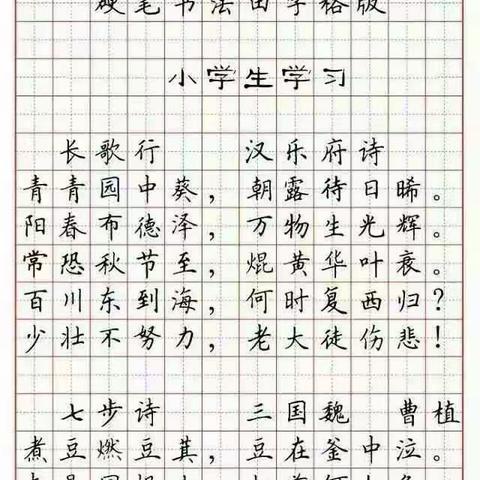 硬笔书法田字格版
小学生学习
长歌行 汉乐府诗
青青园中葵，朝露待日晞。
阳春布德泽，万物生光辉。
常恐秋节至，焜黄华叶衰。
百川东到海，何时复西归？
少壮不努力，老大徒伤悲！
七步诗 三国魏 曹植
煮豆燃豆萁，豆在釜中泣。